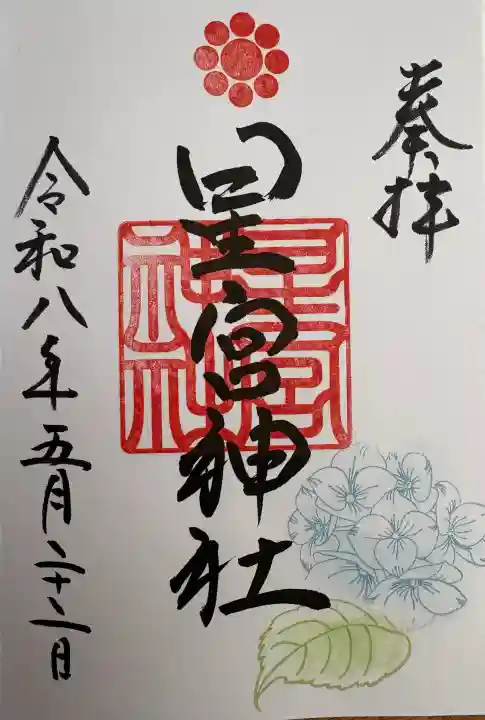 奉拝
星宮神社
令和八年五月二十二日